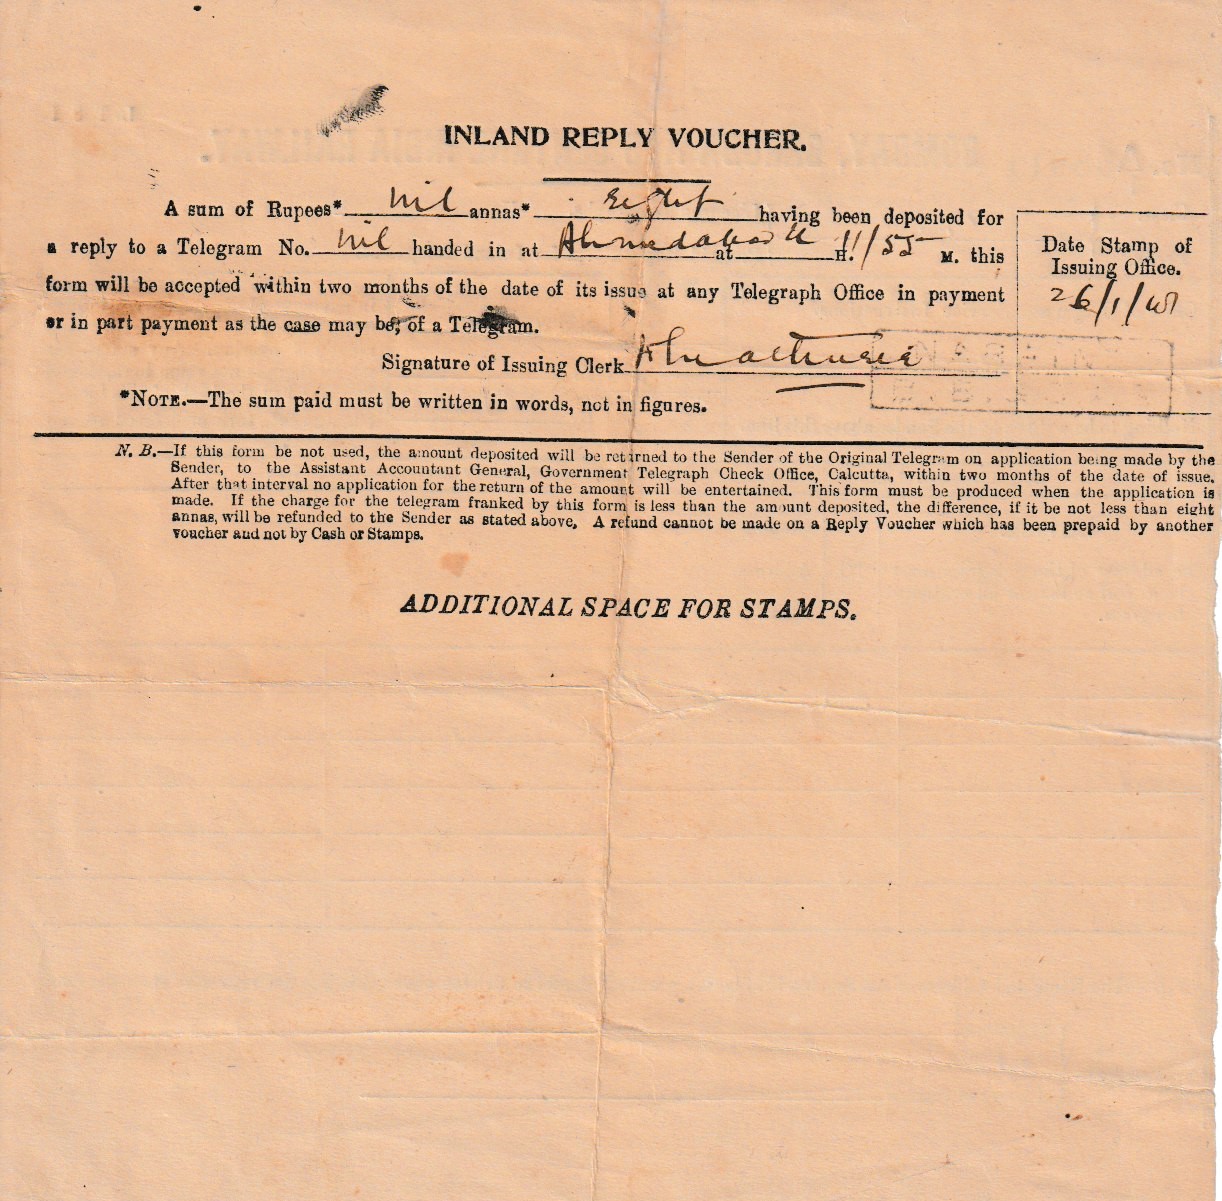 INLAND REPLY VOUCHER.
A sum of Rupees* nil annas* Eight having been deposited for
a reply to a Telegram No. nil handed in at Ahmedabad at H. 11/55 M. this
form will be accepted within two months of the date of its issue at any Telegraph Office in payment
or in part payment as the case may be, of a Telegram.
Date Stamp of
Issuing Office.
26/1/
Signature of Issuing Clerk
*NOTE.—The sum paid must be written in words, not in figures.
N. B.—If this form be not used, the amount deposited will be returned to the Sender of the Original Telegram on application being made by the
Sender, to the Assistant Accountant General, Government Telegraph Check Office, Calcutta, within two months of the date of issue.
After that interval no application for the return of the amount will be entertained. This form must be produced when the application is
made. If the charge for the telegram franked by this form is less than the amount deposited, the difference, if it be not less than eight
annas, will be refunded to the Sender as stated above. A refund cannot be made on a Reply Voucher which has been prepaid by another
voucher and not by Cash or Stamps.
ADDITIONAL SPACE FOR STAMPS.